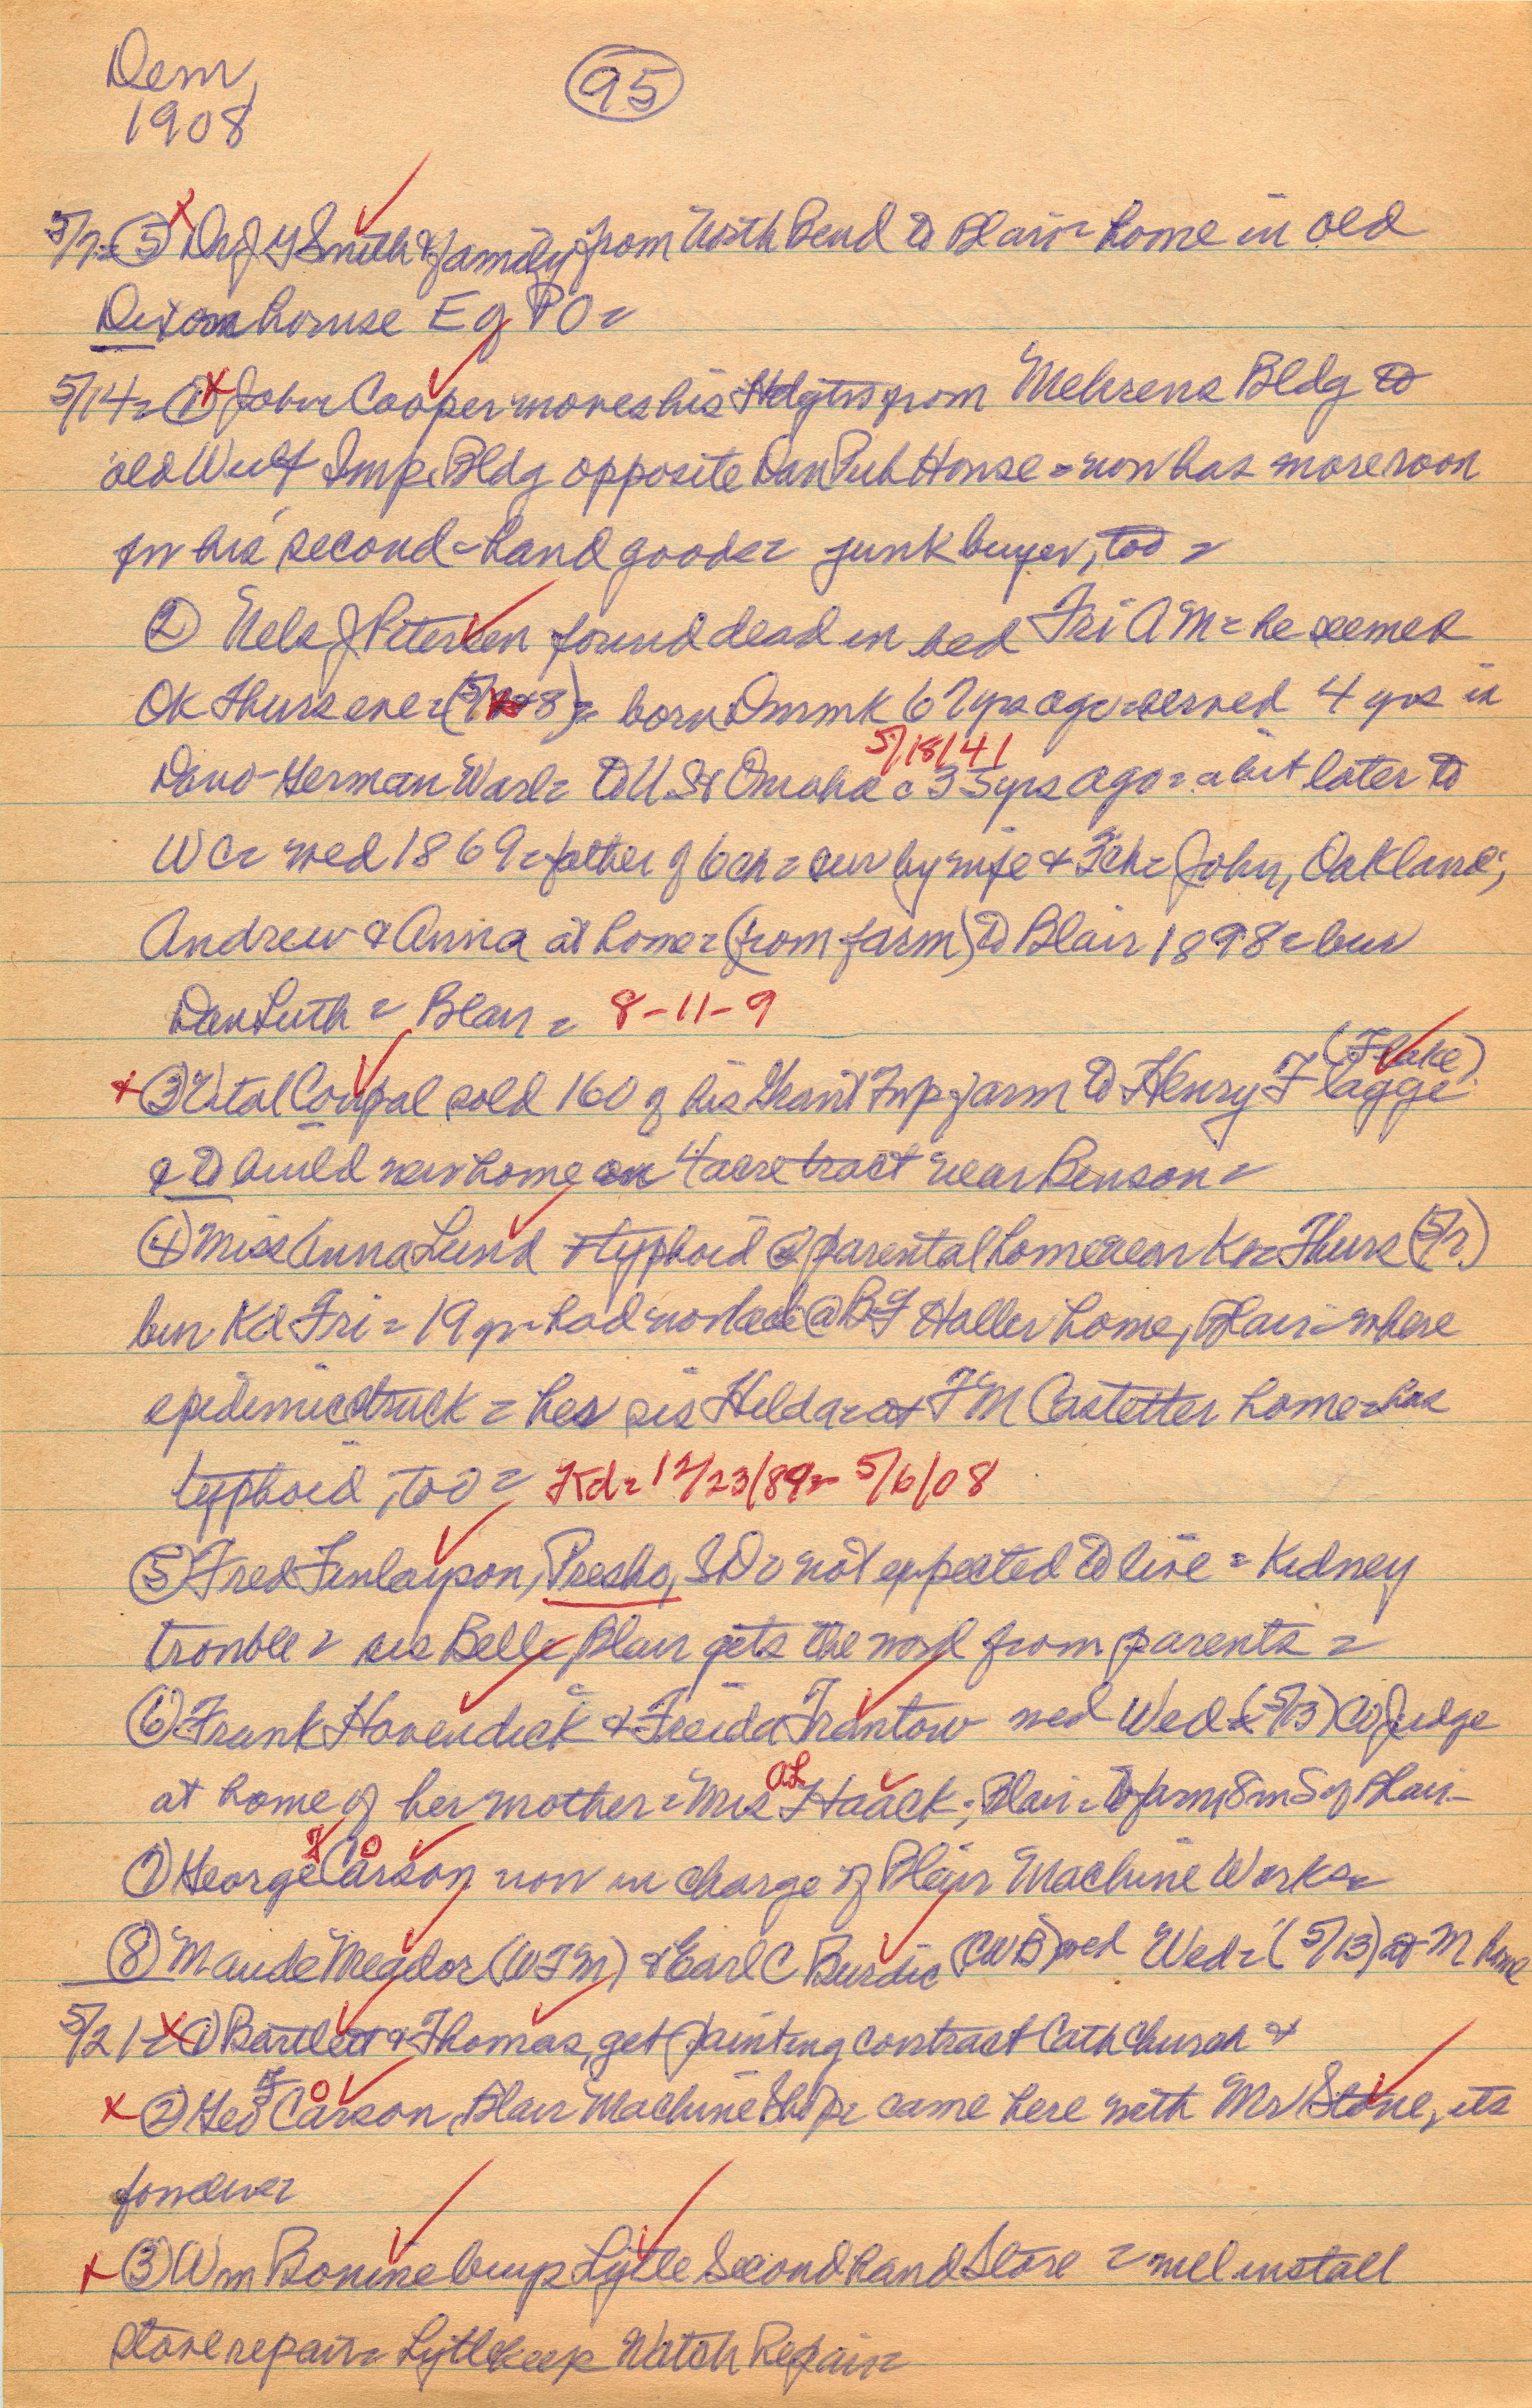 Dem, 1908
95
5/7= ③ Dr J Y Smith & family from North Bend to Blair= home in old
Dixon house E of PO=
5/14= ① John Cooper moves his Hdqtrs from Mehrens Bldg to
old Wulf Imp. Bldg opposite Dan Pub House = now has more room
for his second-hand goods= junk buyer, too =
② Nels J Petersen found dead in bed Fri AM= he seemed
OK Thurs eve= (5/7/08)= born Dnmrk 67 yrs ago= served 4 yrs in
5/18/41
Dano-German War= to US & Omaha c 35 yrs ago= a bit later to
WC= wed 1869= father of 6 ch= sur by wife & 3 ch= John, Oakland;
Andrew & Anna at home= (from farm) to Blair 1898= bur
Dan Luth = Blair = 8-11-9
(Flake)
③ Vital Coupal sold 160 of his Grant Twp farm to Henry Flagge
& to build new home on 4 acre tract near Benson=
④ Miss Anna Lund typhoid @ parental home near Kn= Thurs (5/7)
bur Kd Fri = 19 yr= had worked @ B F Haller home, Blair= where
epidemic struck = her sis Hilda= at F M Castetter home= has
typhoid, too = Kd= 12/23/89= 5/6/08
⑤ Fred Finlayson, Presho, SD= not expected to live = Kidney
trouble = sis Belle, Blair gets the word from parents =
⑥ Frank Hovendick & Freida Frantow wed Wed= (5/13) Co Judge
at home of her mother= Mrs AL Haack, Blair= to farm 8 m S of Blair-
⑦ George F Carson now in charge of Blair Machine Works=
⑧ Maude Meador (WFM) & Earl C Burdic (CWB) wed Wed= (5/13) at M home
5/21= ① Bartlett & Thomas, get painting contract Cath Church
② Geo F Carson, Blair Machine Shop= came here with Mr Stone, its
founder=
③ Wm Bonine buys Lytle Second Hand Store = will install
stove repair= Lytle keeps Watch Repair=